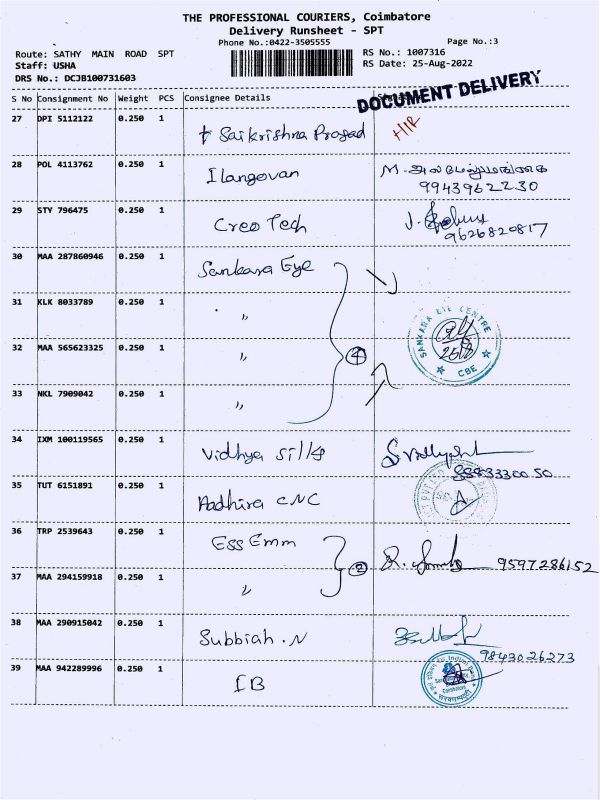 THE PROFESSIONAL COURIERS, Coimbatore
Delivery Runsheet - SPT
Phone No.:0422-3505555 Page No.:3
Route: SATHY MAIN ROAD SPT RS No.: 1007316
Staff: USHA RS Date: 25-Aug-2022
DRS No.: DCJB100731603
DOCUMENT DELIVERY
S No Consignment No Weight PCS Consignee Details
27 DPI 5112122 0.250 1 Saikrishna Prasad H/R
28 POL 4113762 0.250 1 Ilangovan
9943962230
29 STY 796475 0.250 1 Creo Tech
9626820817
30 MAA 287860946 0.250 1 Sankara Eye
31 KLK 8033789 0.250 1 "
SANKARA EYE CENTRE
CBE
32 MAA 565623325 0.250 1 " 4
33 NKL 7909042 0.250 1 "
34 IXM 100119565 0.250 1 Vidhya Silks
35 TUT 6151891 0.250 1 Aadhira CNC
36 TRP 2539643 0.250 1 Ess Emm
2 9597286152
37 MAA 294159918 0.250 1 "
38 MAA 290915042 0.250 1 Subbiah . N
9843026273
39 MAA 942289996 0.250 1 IB